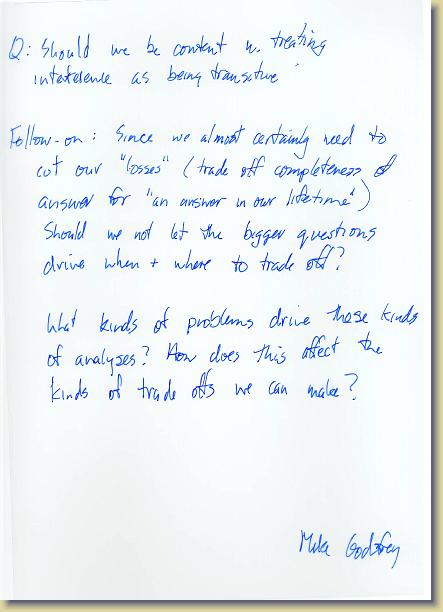 Q: Should we be content w. treating
as being transitive
Follow-on: Since we almost certainly need to
cut our "losses" (trade off completeness of
answer for "an answer in our lifetime")
Should we not let the bigger questions
drive when + where to trade off?
What kinds of problems drive these kinds
of analyses? How does this affect the
kinds of trade offs we can make?
Mike Godfrey